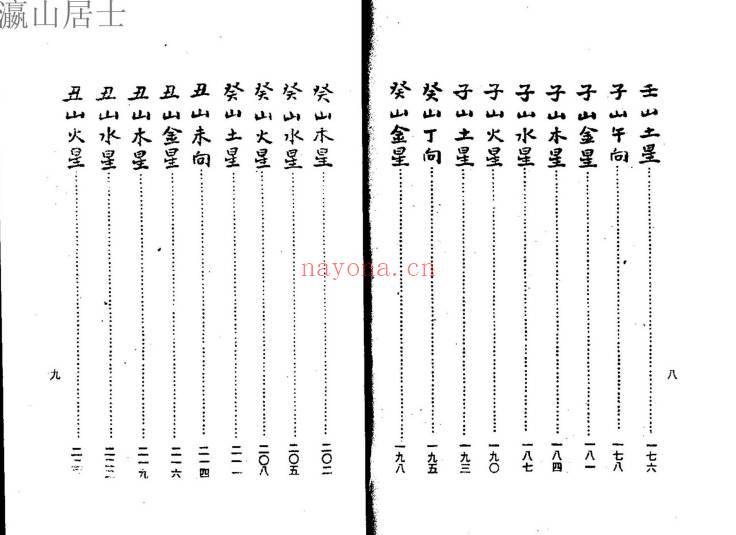 瀛山居士
壬山土星……一七六
子山午向……一七八
子山金星……一八一
子山木星……一八四
子山水星……一八七
子山火星……一九〇
子山土星……一九三
癸山丁向……一九五
癸山金星……一九八
八
癸山木星……二〇二
癸山水星……二〇五
癸山火星……二〇八
癸山土星……二一一
丑山未向……二一四
丑山金星……二一六
丑山木星……二一九
丑山水星……
丑山火星……
九
nayona.cn